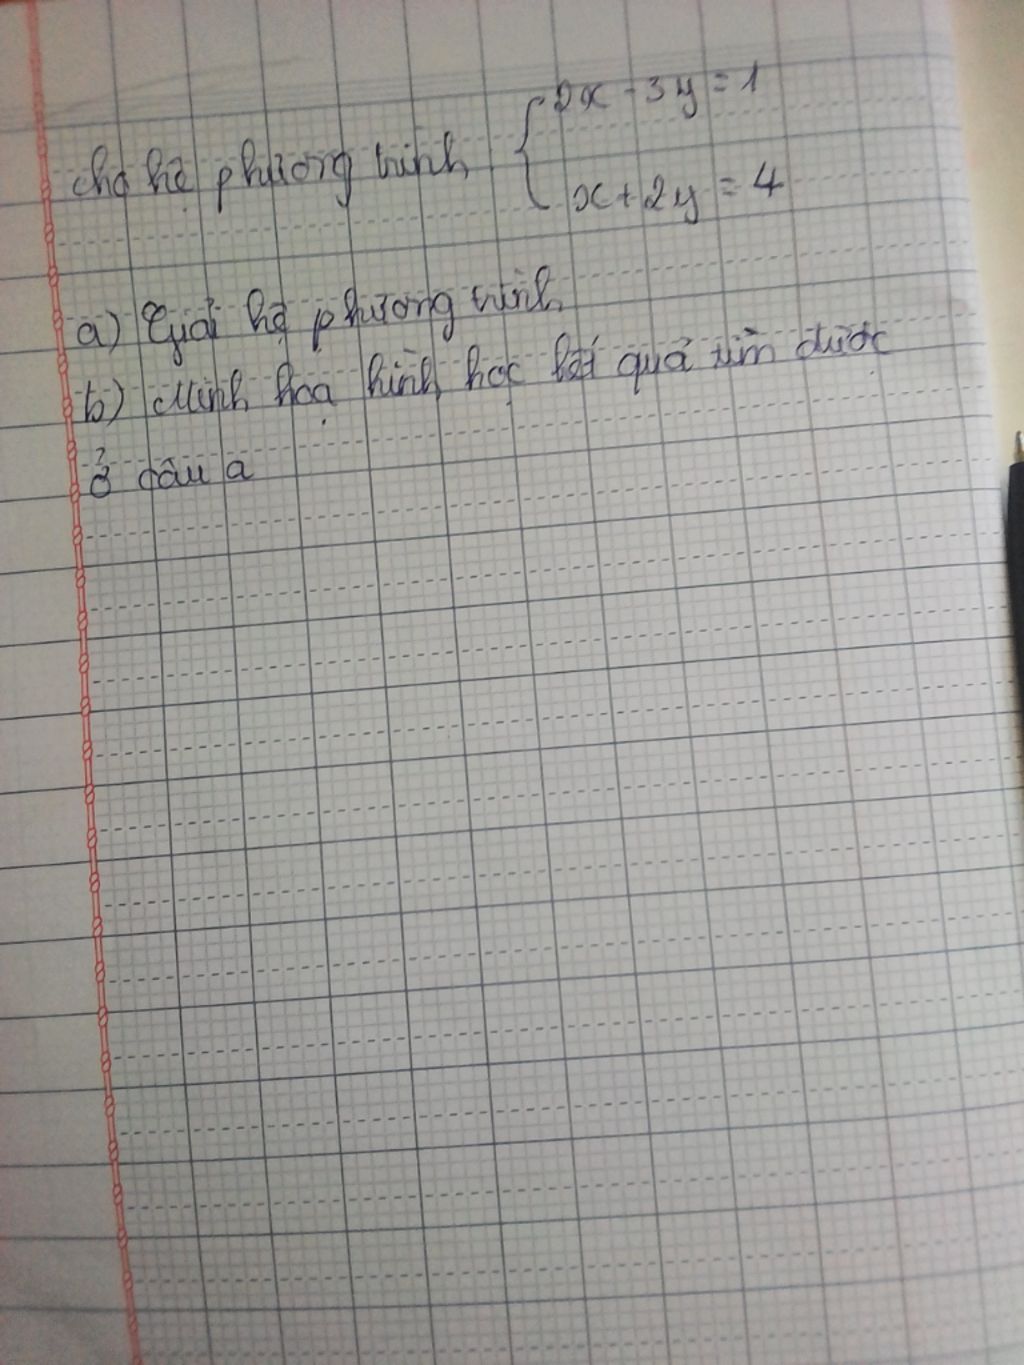 cho hệ phương trình { 2x - 3y = 1
x + 2y = 4
a) Giải hệ phương trình
b) Minh hoạ hình học kết quả tìm được
ở câu a